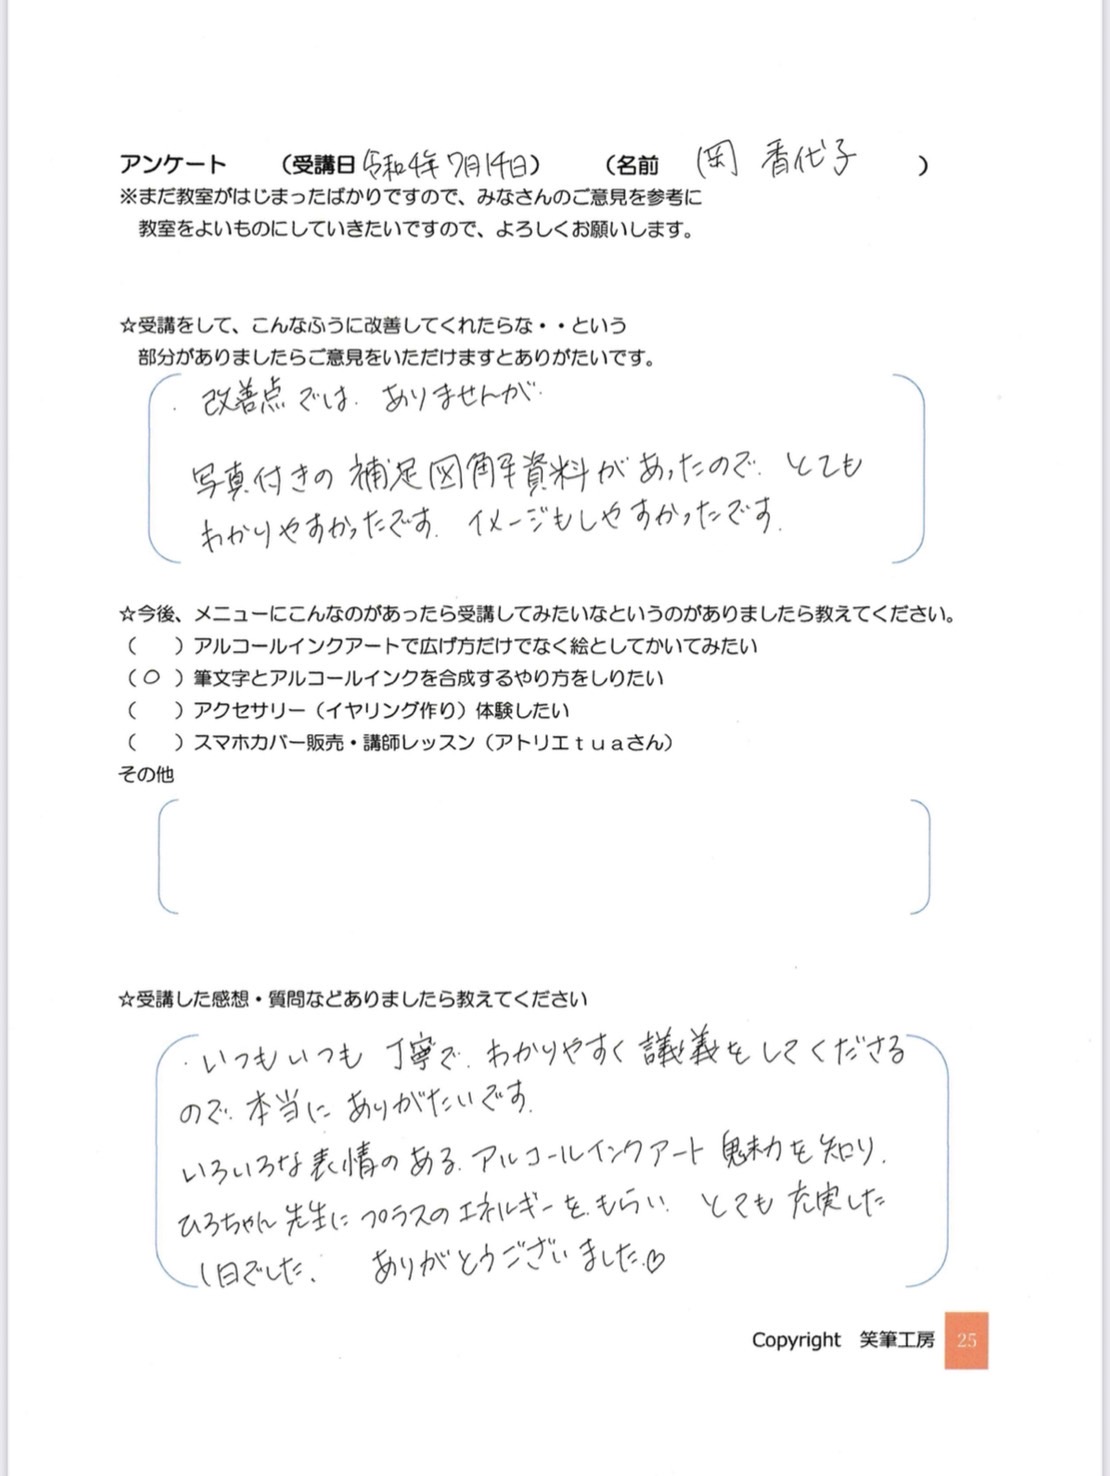 アンケート　（受講日 令和4年7月14日）　（名前　岡 香代子　）
※まだ教室がはじまったばかりですので、みなさんのご意見を参考に
教室をよいものにしていきたいですので、よろしくお願いします。
☆受講をして、こんなふうに改善してくれたらな・・という
部分がありましたらご意見をいただけますとありがたいです。
・改善点では、ありませんが、
写真付きの補足図解資料があったので、とても
わかりやすかったです。イメージもしやすかったです。
☆今後、メニューにこんなのがあったら受講してみたいなというのがありましたら教えてください。
（　）アルコールインクアートで広げ方だけでなく絵としてかいてみたい
（○）筆文字とアルコールインクを合成するやり方をしりたい
（　）アクセサリー（イヤリング作り）体験したい
（　）スマホカバー販売・講師レッスン（アトリエｔｕａさん）
その他
☆受講した感想・質問などありましたら教えてください
・いつもいつも 丁寧で、わかりやすく 議義をしてくださる
ので、本当に ありがたいです。
いろいろな表情のある、アルコールインクアート 魅力を知り、
ひろちゃん先生に プラスのエネルギーを、もらい、とても 充実した
1日でした、 ありがとうございました♡
Copyright　笑筆工房 25